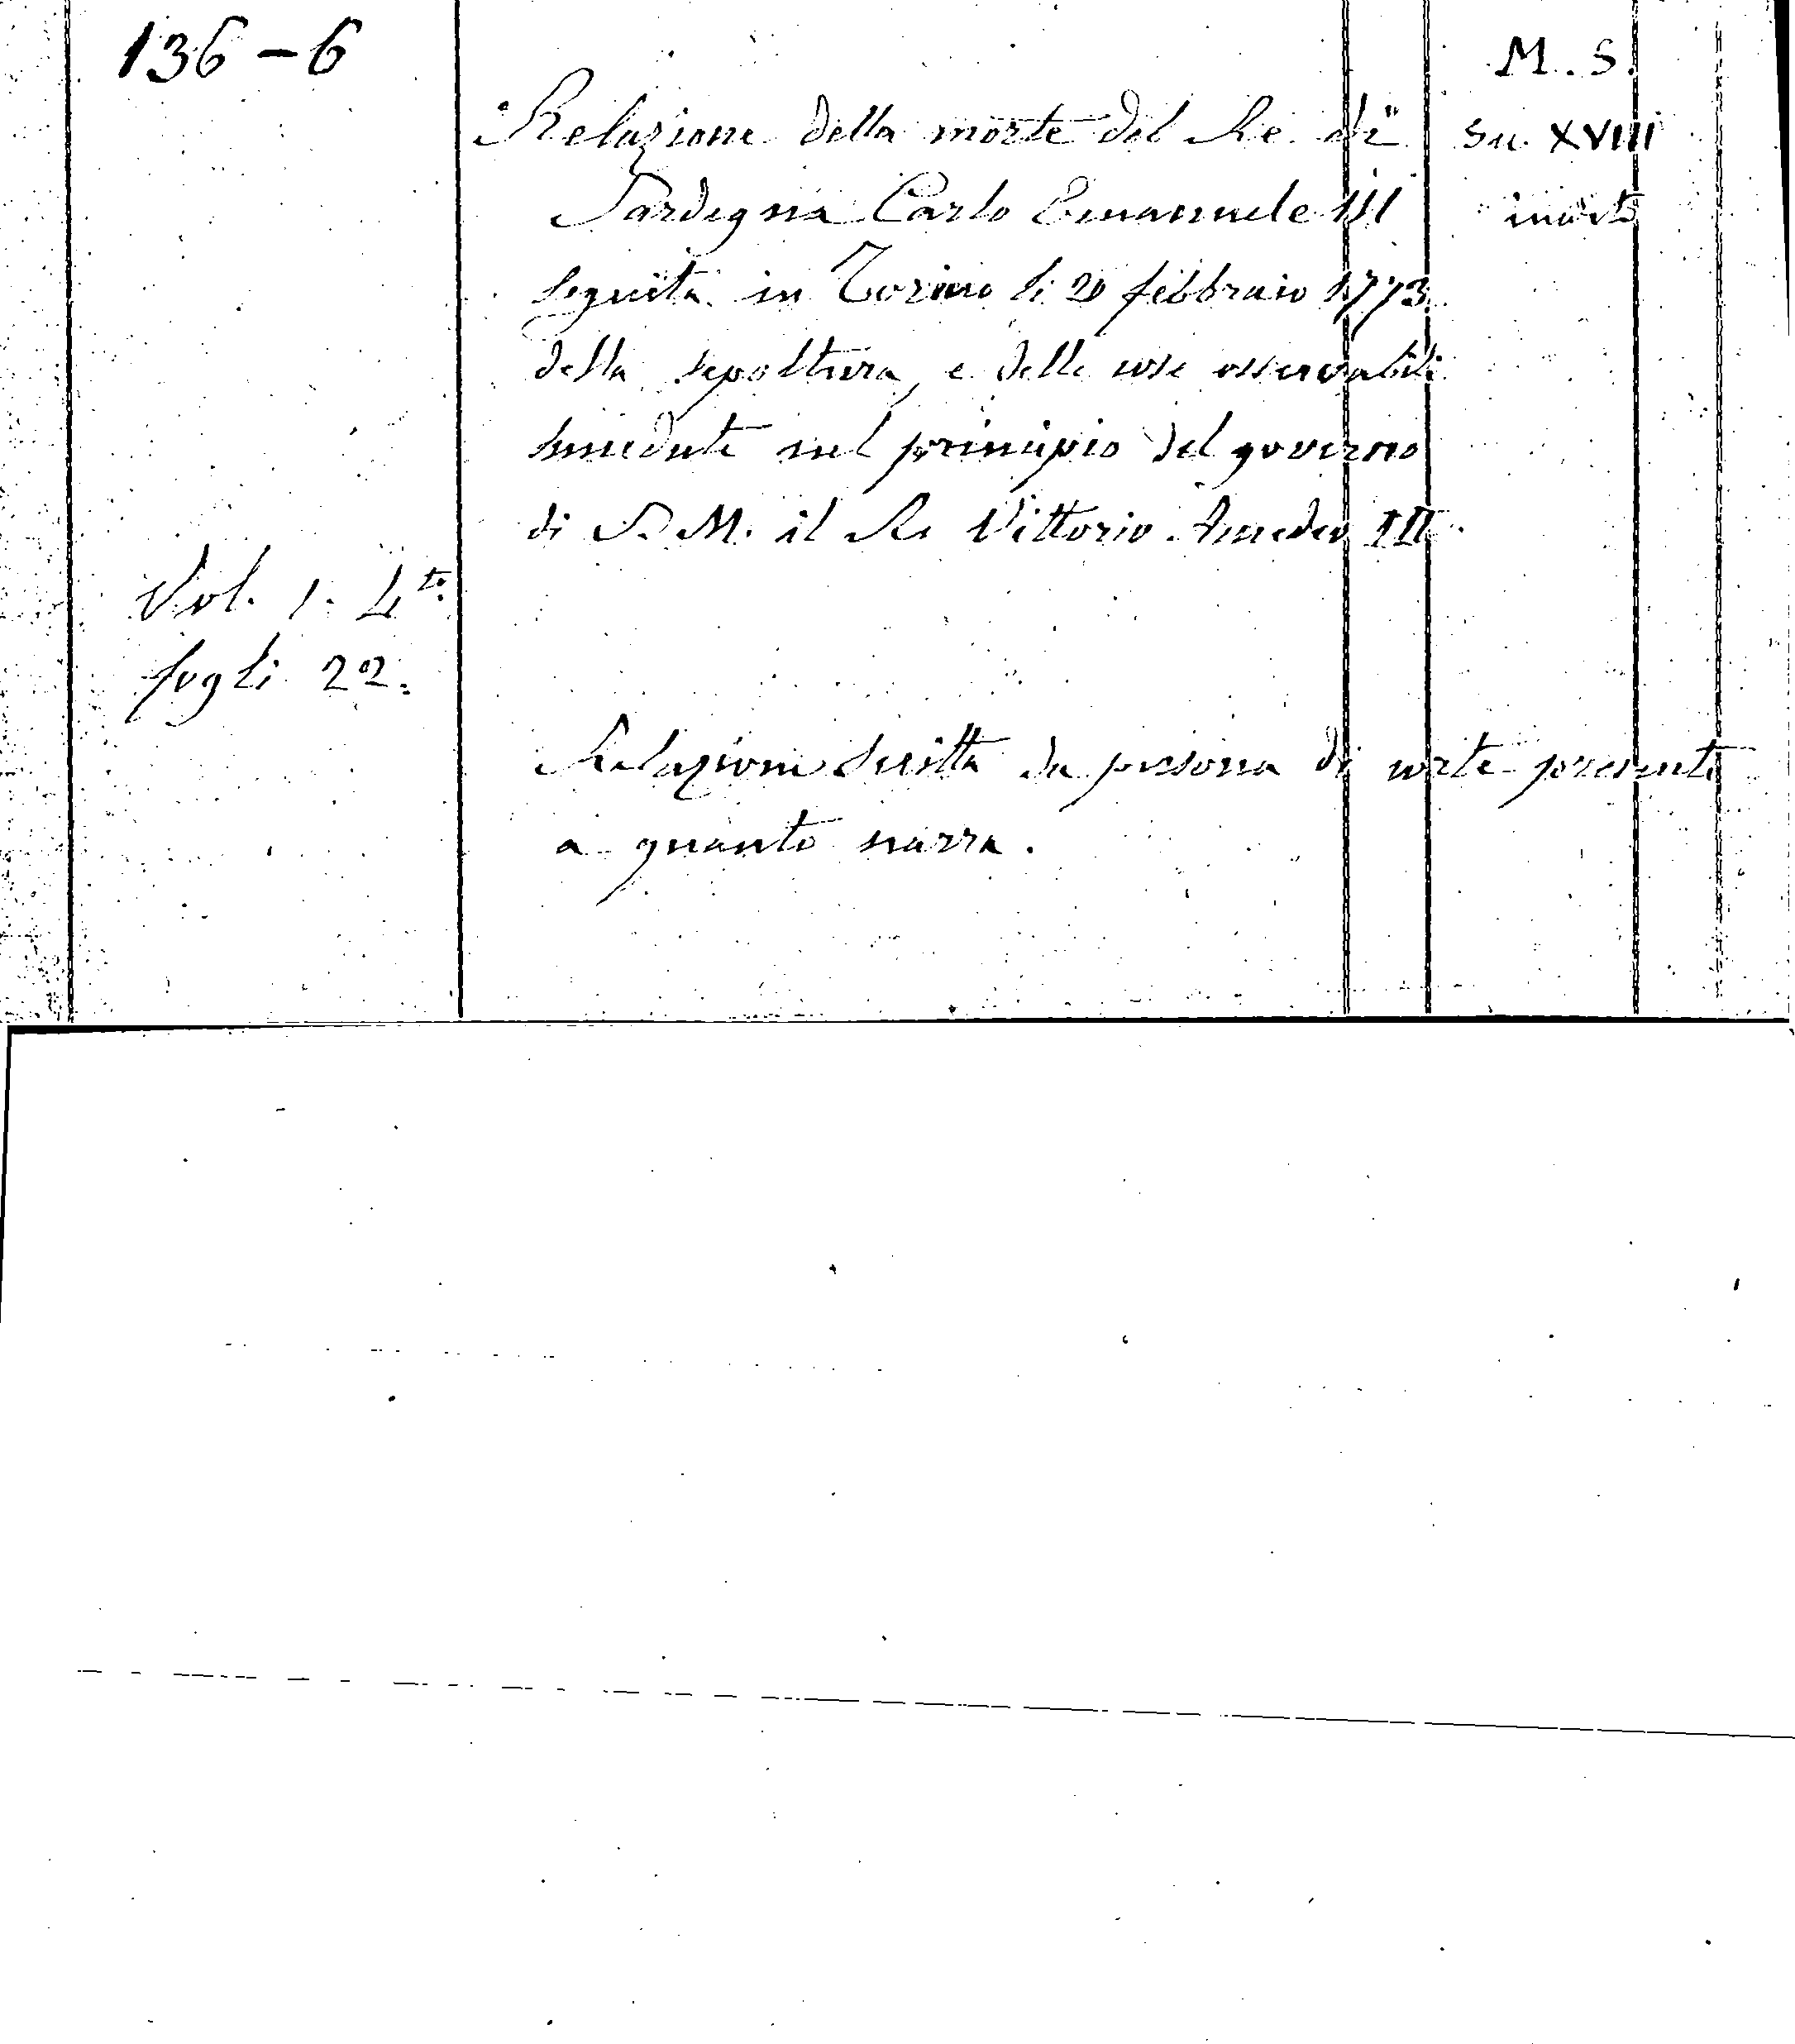 136-6
M. S.
Relazione della morte del Re di
Sec. XVIII
Sardegna Carlo Emanuele III
seguita in Torino li 20 febbraio 1773
della sepoltura, e delle cose osservabili
succedute nel principio del governo
di S. M. il Re Vittorio Amedeo III.
Vol. 1. 4to.
fogli 22.
Relazione scritta da persona di corte presente
a quanto narra.